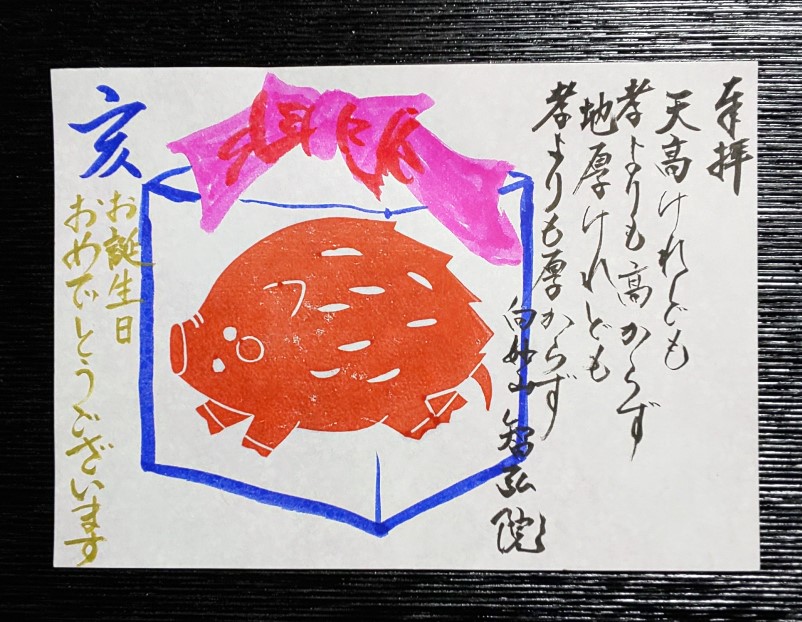 奉拝
天高けれども
孝よりも高からず
地厚けれども
孝よりも厚からず
向妙山 智弘院
亥
お誕生日
おめでとうございます